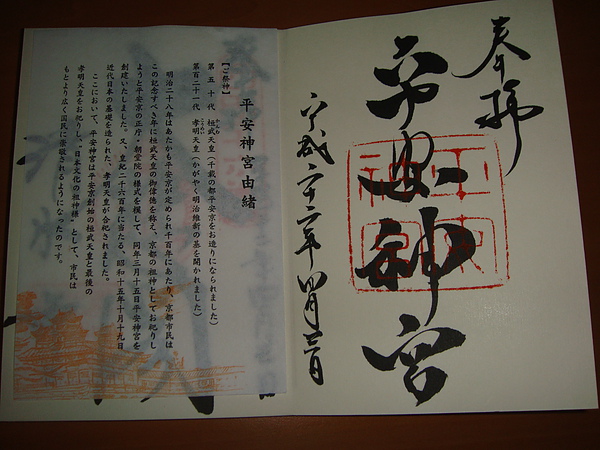 奉拝
平安神宮
平成二十二年四月
平安神宮由緒
【ご祭神】
第五十代 桓武天皇(千載の都平安京をお造りになられました)
第百二十一代 孝明天皇(かがやく明治維新の基を開かれました)
明治二十八年はあたかも平安京が定められ千百年にあたり、京都市民は
この記念すべき年に桓武天皇の御偉徳を称え、京都の祖神としてお祀りし
ようと平安京の正庁・朝堂院の様式を模して、同年三月十五日平安神宮を
創建いたしました。又、皇紀二千六百年に当たる、昭和十五年十月十九日
近代日本の基礎を造られた、孝明天皇が合祀されました。
ここにおいて、平安神宮は平安京創始の桓武天皇と最後の
孝明天皇をお祀りし、"日本文化の祖神様"として、市民は
もとより広く国民に崇敬されるようになったのです。